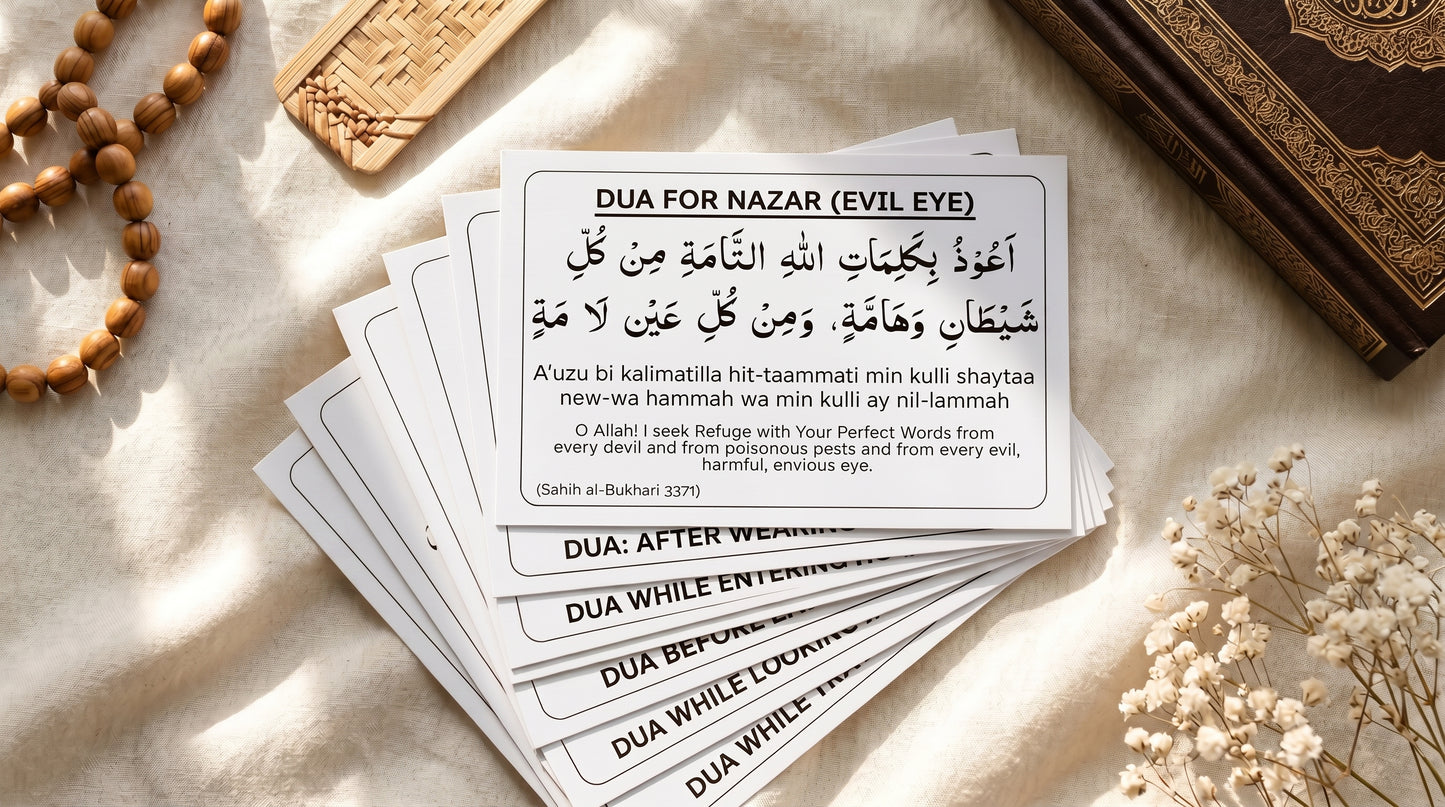 DUA FOR NAZAR (EVIL EYE)
اَعُوْذُ بِكَلِمَاتِ اللهِ التَّامَةِ مِنْ كُلِّ
شَيْطَانِ وَهَامَّةٍ، وَمِنْ كُلِّ عَيْن لَا مَةٍ
A'uzu bi kalimatilla hit-taammati min kulli shaytaa
new-wa hammah wa min kulli ay nil-lammah
O Allah! I seek Refuge with Your Perfect Words from
every devil and from poisonous pests and from every evil,
harmful, envious eye.
(Sahih al-Bukhari 3371)
DUA: AFTER WEARING
DUA WHILE ENTERING
DUA BEFORE
DUA WHILE LOOKING
DUA WHILE